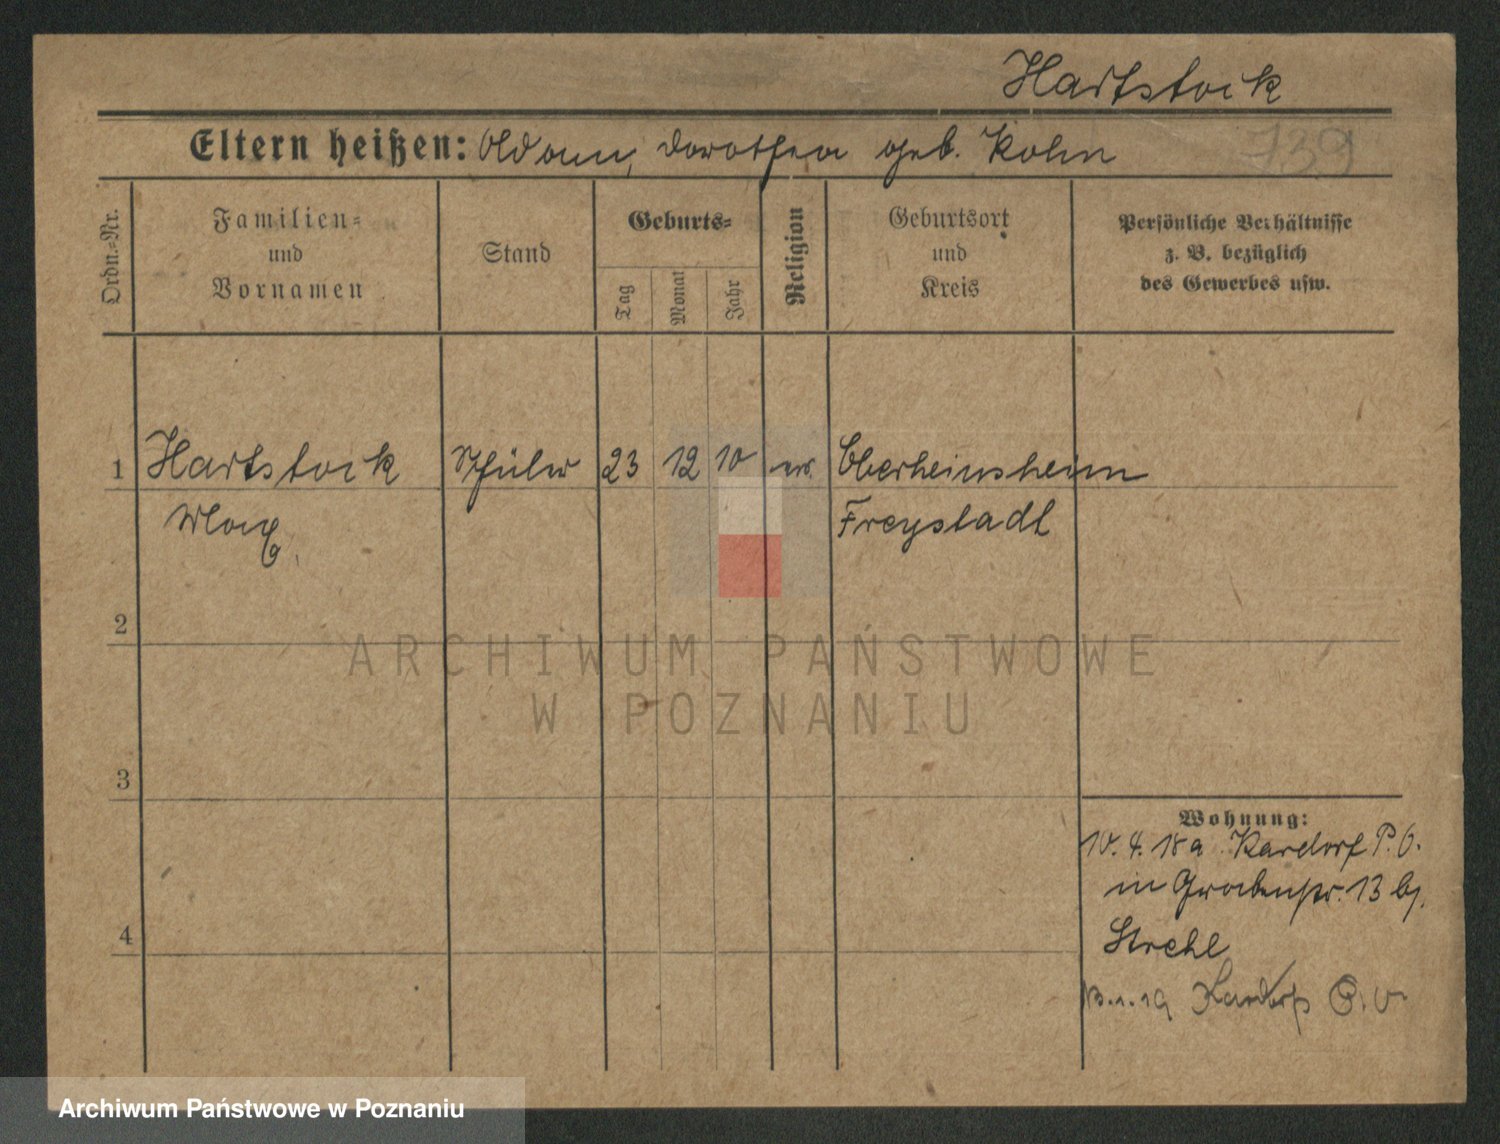 Hartstock
Eltern heißen: Adam, Dorothea geb. Kohn
739
Ordn.-Nr.
Familien-
und
Vornamen
Stand
Geburts-
Tag
Monat
Jahr
Religion
Geburtsort
und
Kreis
Persönliche Verhältnisse
z. B. bezüglich
des Gewerbes usw.
1 Hartstock Schüler 23 12 10 Oberheinsheim
Freystadt
2
ARCHIWUM PAŃSTWOWE
W POZNANIU
3
Wohnung:
10. 4. 18 a Kardorf P. O.
in Grabenstr. 13 bj.
4
Strehl
Kardorf P. O.
Archiwum Państwowe w Poznaniu